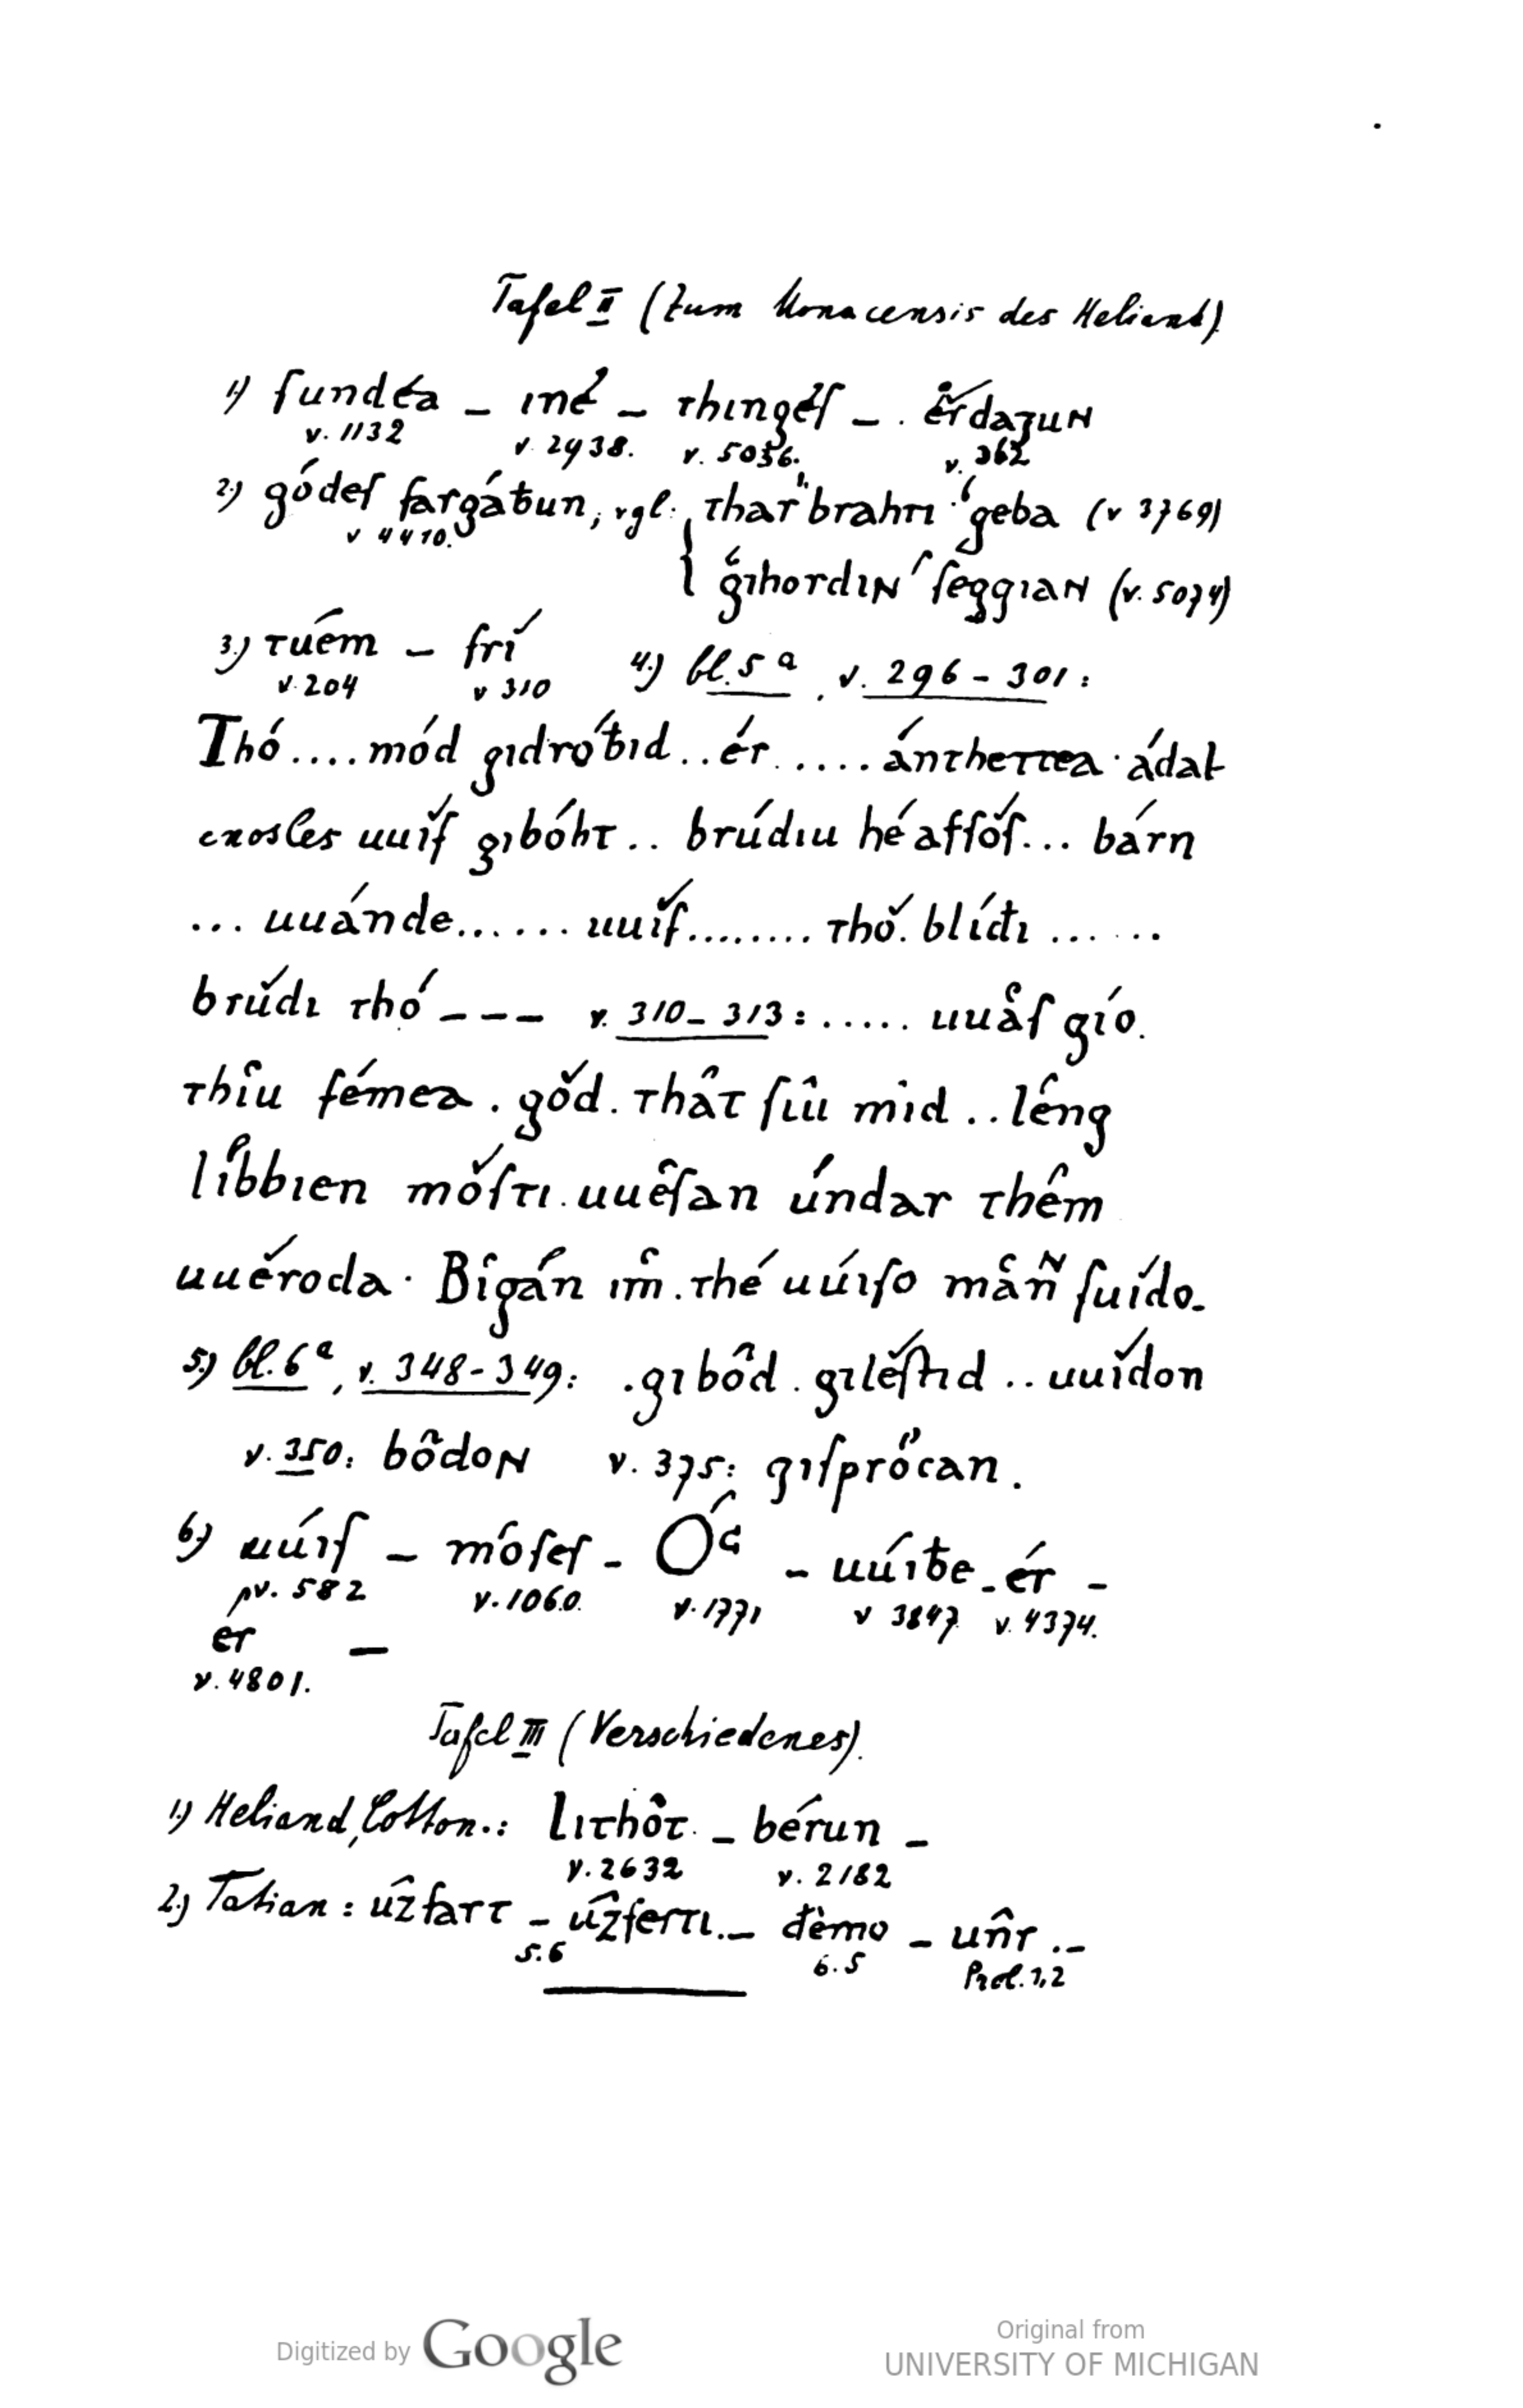 Tafel II (zum Monacensis des Heliand)
1.) ſundéa – iné – thingéſ – . érdagun
v. 1132 v. 2938. v. 5036. v. 362
2.) gódeſ fargáƀun, vgl. thar brahti geba (v 3769)
v 4410.
gihordin ſeggian (v. 5074)
3.) tuém – frí 4.) bl. 5ª, v. 296 – 301:
v. 204 v 310
Thó .... mód gidróƀid .. ér ...... ánthettea · ádal
cnosles uuíſ gibóht .. brúdiu hé afſóſ ... bárn
... uuánde ....... uuíf ........ thó. blíđi ......
brúdi thó – – – v. 310 – 313: ..... uuâſ gío.
thîu fémea . gód . thât ſiû mîd .. lêng
lîbbien móſti . uuêſan úndar thêm
uuéroda · Bîgán îm . thé uúiſo mân ſuído.
5.) bl. 6ª, v. 348 – 349: . gibôd . giléſtid .. uuídon
v. 350: bôdon v. 375: giſprőcan .
6.) uúiſ – móſeſ – ÓG – uúiƀe – ér –
pv. 582 v. 1060. v. 1771 v 3847. v. 4374.
er –
v. 4801.
Tafel III (Verschiedenes).
1.) Heliand, Cotton.: lithôt – bérun –
v. 2632 v. 2182
2.) Tatian: ûzfart – ûzferti. – đèmo – unr̂ . –
5.6 6.5 Prol. 1,2
Digitized by Google
Original from
UNIVERSITY OF MICHIGAN